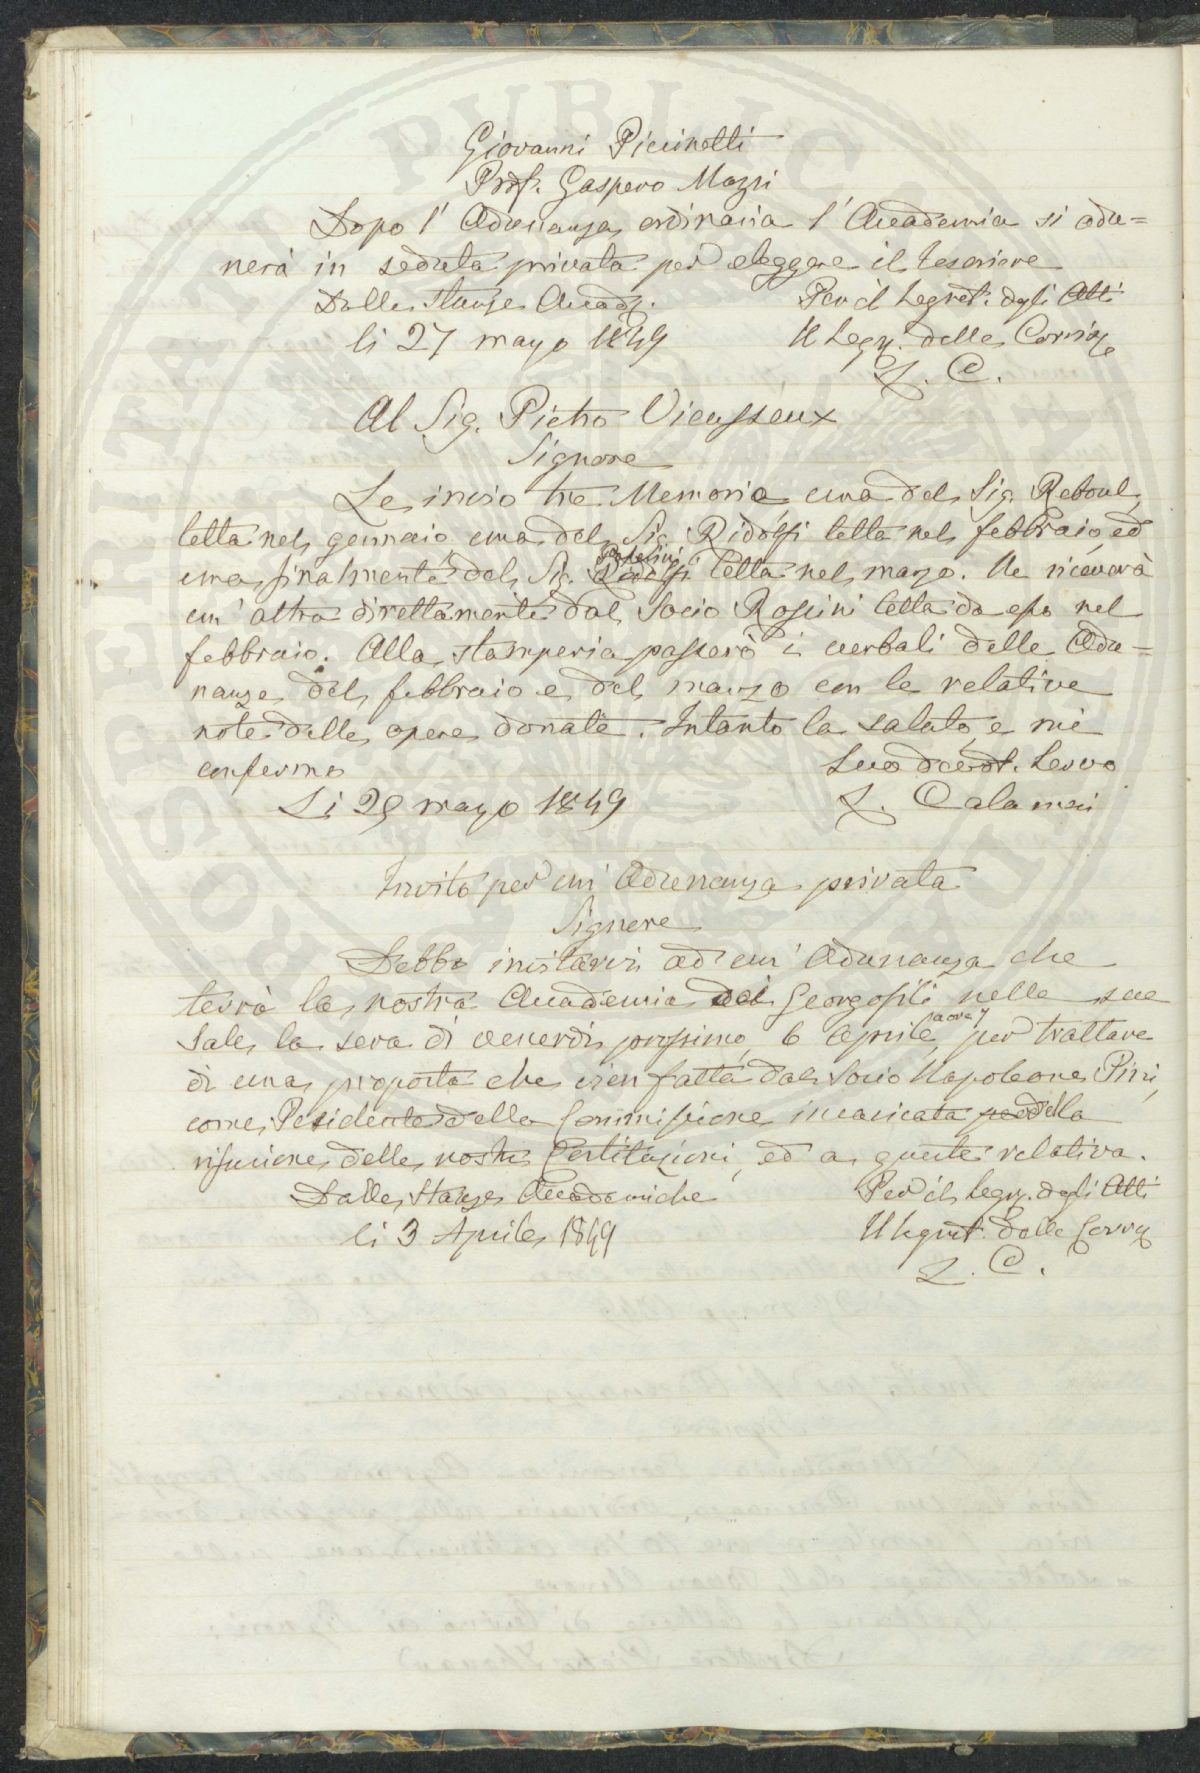 Giovanni Piccinelli
Prof. Gaspero Mazzi
Dopo l'Adunanza ordinaria l'Accademia si adu=
nerà in seduta privata per eleggere il tesoriere
Dalle stanze Accadz. Per il Segret. degli Atti
li 27 marzo 1849 Il Segr. delle Corrisze
L. C.
Al Sig. Pietro Vieusseux
Signore
Le invio tre Memorie una del Sig. Reboul,
letta nel gennaio una del Sig. Ridolfi letta nel febbraio, ed
una finalmente del Sig. Ridolfi letta nel marzo. Ne riceverà
un'altra direttamente dal Socio Rossini letta da esso nel
febbraio. Alla stamperia passerò i verbali delle Adu=
nanze del febbraio e del marzo con le relative
note delle opere donate. Intanto la saluto, e mi
confermo Suo Servo
Li 29 marzo 1849 L. Calamai
Invito per un'Adunanza privata
Signore
Debbo invitarvi ad un'Adunanza che
terrà la nostra Accademia dei Georgofili nelle sue
Sale la sera di venerdì prossimo, 6 Aprile a ore 7 per trattare
di una proposta che vien fatta dal Socio Napoleone Pini,
come Presidente della Commissione incaricata della
rifusione delle nostre Costituzioni, ed a queste relativa.
Dalle Stanze Accademiche Per il Segr. degli Atti
li 3 Aprile 1849 Il Segret. delle Corrze
L. C.
PROSPERITATI PUBLICAE AUGENDAE